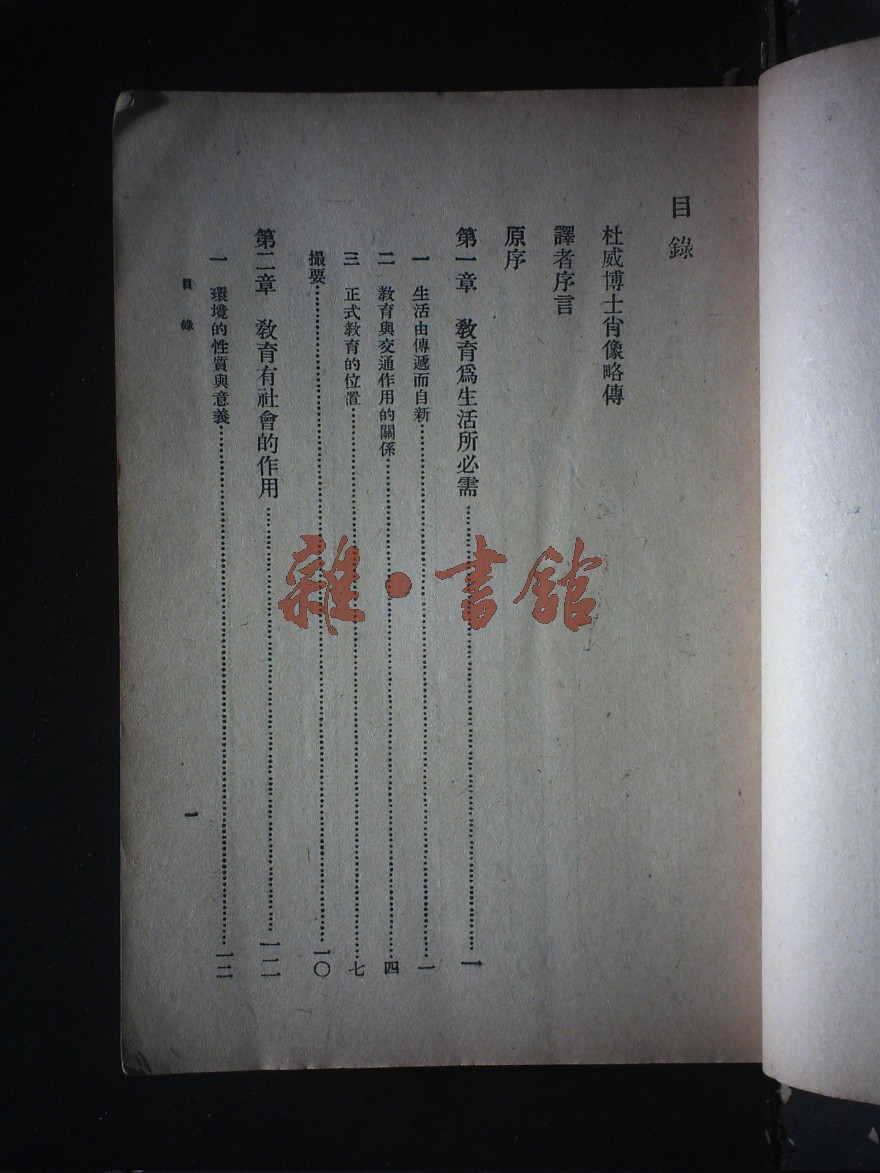 目錄
杜威博士肖像略傳
譯者序言
原序
第一章 教育爲生活所必需……一
一 生活由傳遞而自新……一
二 教育與交通作用的關係……四
三 正式教育的位置……七
撮要……一〇
第二章 教育有社會的作用……一二
一 環境的性質與意義……一二
目錄 一
雜·書館